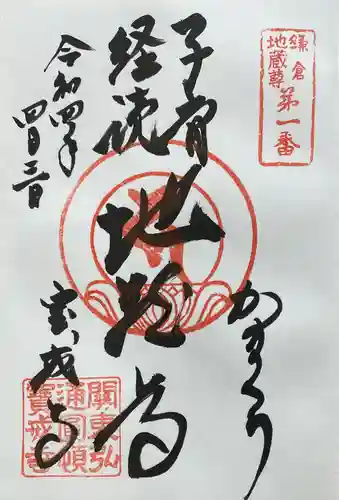 鎌倉
地蔵尊
第一番
子育
経読
地蔵尊
かまくら
令和四年
四月三日
宝戒寺
關東弘
通圓頓
寶戒寺